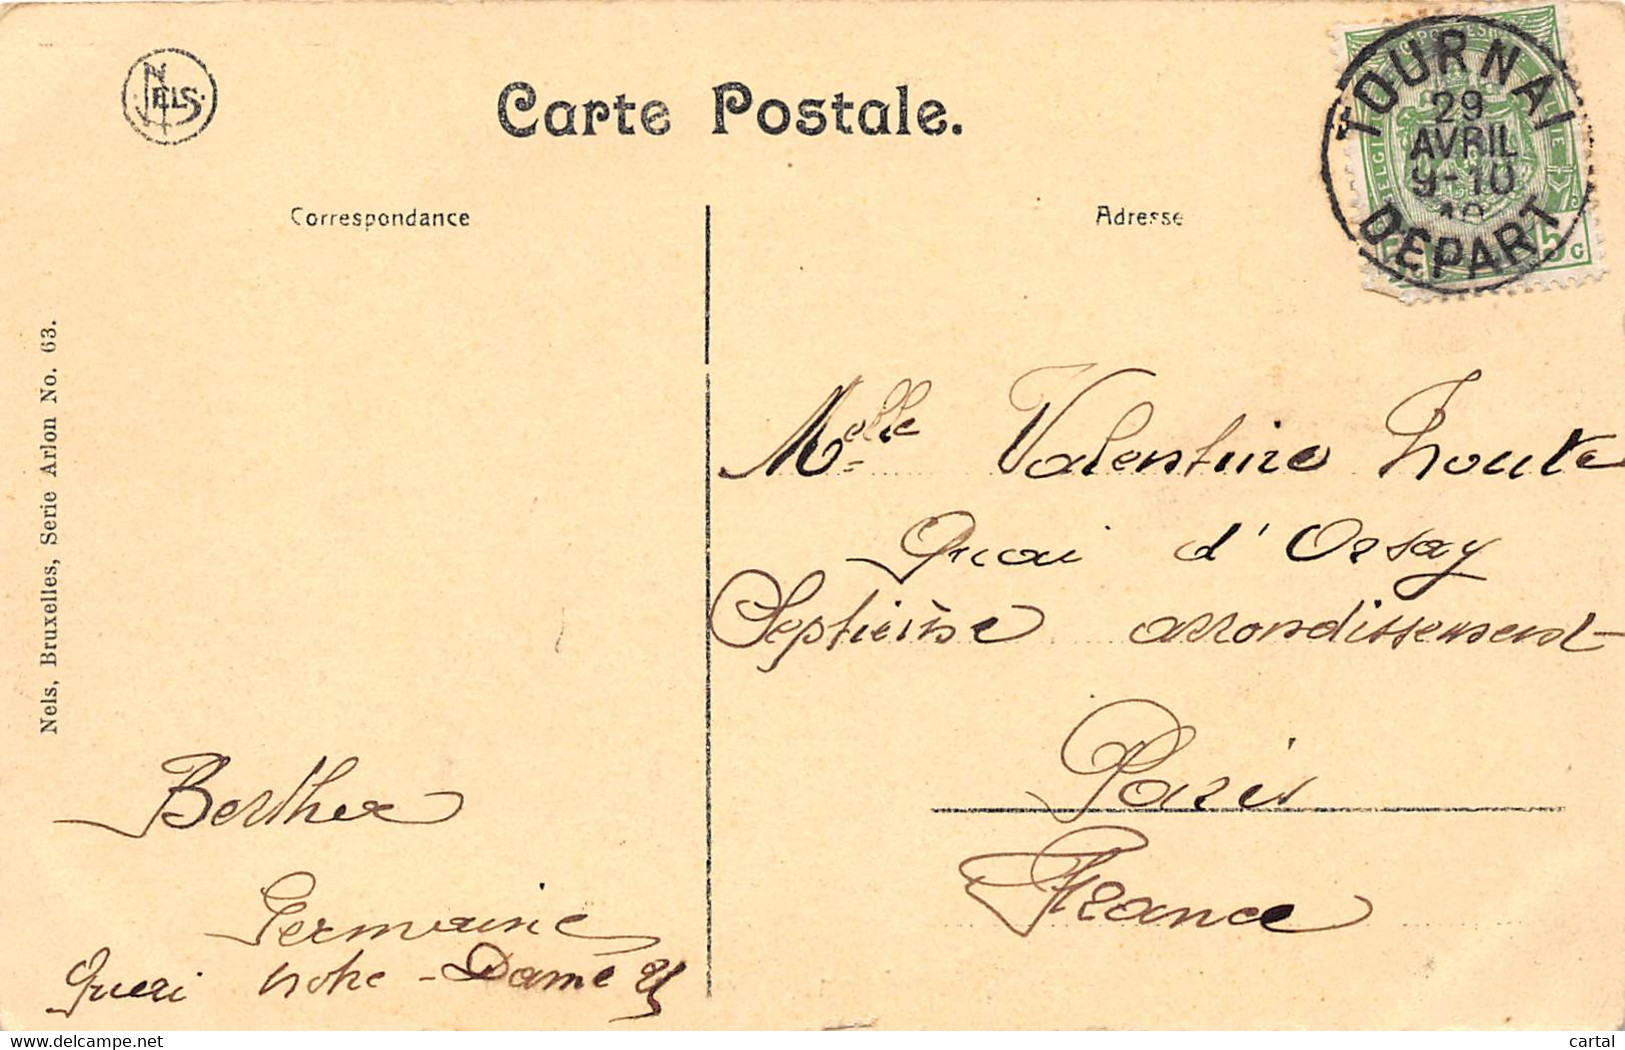 NELS.
Carte Postale.
TOURNAI
29
AVRIL
9-10
DEPART
5 C
Correspondance
Adresse
Nels, Bruxelles, Serie Arlon No. 63.
Melle Valentine
Quai d'Orsay
Septième arrondissement
Paris
France
Berthe
Germaine
Quai Notre-Dame 25
www.delcampe.net
cartal